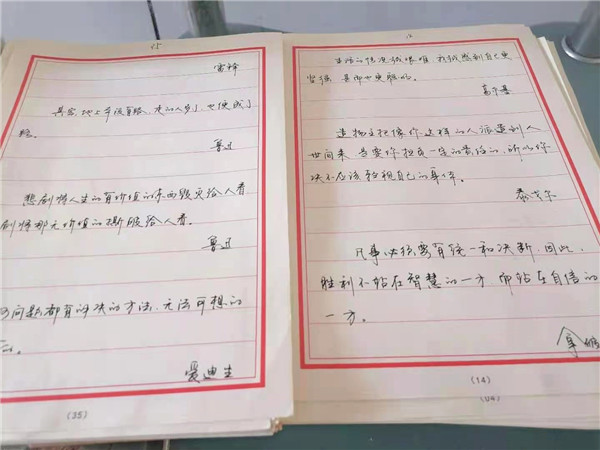 雷锋
其实地上本没有路、走的人多了、也便成了
路。
鲁迅
悲剧将人生的有价值的东西毁灭给人看
剧将那无价值的撕破给人看。
鲁迅
问题都有解决的方法、无法可想的
爱迪生
(35)
生活的情况越艰难、我越感到自己更
坚强、甚而也更聪明。
高尔基
造物主把像你这样的人派遣到人
世间来、是要你担负一定的责任的、所以你
决不应该轻视自己的身体。
泰戈尔
凡事必须要有统一和决断、因此、
胜利不站在智慧的一方而站在自信的
一方。
拿破
(14)
(04)